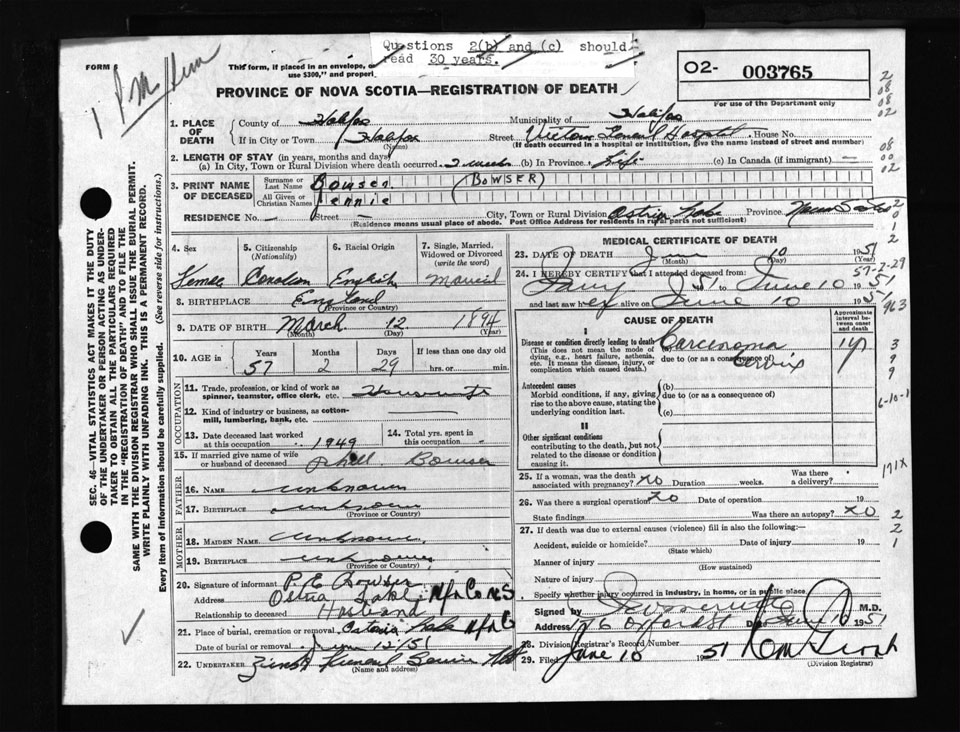 Questions 2(b) and (c) should
read 30 years.
FORM 5
This form, if placed in an envelope,
use $300," and properl
PROVINCE OF NOVA SCOTIA—REGISTRATION OF DEATH
O2- 003765
For use of the Department only
1. PLACE OF DEATH
County of Halifax Municipality of Halifax
If in City or Town Halifax (Name) Street Victoria General Hospital House No.
(If death occurred in a hospital or institution, give the name instead of street and number)
2. LENGTH OF STAY (in years, months and days)
(a) In City, Town or Rural Division where death occurred 2 weeks (b) In Province Life (c) In Canada (if immigrant) —
3. PRINT NAME OF DECEASED
Surname or Last Name Bowser (BOWSER)
All Given or Christian Names Jennie
RESIDENCE No. — Street — City, Town or Rural Division Lake Province Nova Scotia
(Residence means usual place of abode. Post Office Address for residents in rural parts not sufficient)
4. Sex
Female
5. Citizenship (Nationality)
Canadian
6. Racial Origin
English
7. Single, Married, Widowed or Divorced (write the word)
Married
8. BIRTHPLACE England
(Province or Country)
9. DATE OF BIRTH March 12 1894
(Month) (Day) (Year)
10. AGE in Years Months Days If less than one day old
57 2 29 hrs. or min.
OCCUPATION
11. Trade, profession, or kind of work as spinner, teamster, office clerk, etc. Housewife
12. Kind of industry or business, as cotton-mill, lumbering, bank, etc.
13. Date deceased last worked at this occupation 1949
14. Total yrs. spent in this occupation
15. If married give name of wife or husband of deceased Bowser
FATHER
16. NAME unknown
17. BIRTHPLACE unknown
(Province or Country)
MOTHER
18. MAIDEN NAME unknown
19. BIRTHPLACE unknown
(Province or Country)
20. Signature of informant P. E. Bowser
Address Lake Hfx Co N.S
Relationship to deceased Husband
21. Place of burial, cremation or removal Lake Hfx Co
Date of burial or removal June 12/51
22. UNDERTAKER Funeral Service
(Name and address)
MEDICAL CERTIFICATE OF DEATH
23. DATE OF DEATH June 10 1951
(Month) (Day) (Year)
24. I HEREBY CERTIFY that I attended deceased from
19 51 to June 10 1951
and last saw her alive on June 10 1951
CAUSE OF DEATH
Approximate interval between onset and death
I
Disease or condition directly leading to death
(This does not mean the mode of dying, e.g., heart failure, asthenia, etc. It means the disease, injury, or complication which caused death.)
(a) Carcinoma
due to (or as a consequence of) Cervix
1 yr
Antecedent causes
Morbid conditions, if any, giving rise to the above cause, stating the underlying condition last.
(b)
due to (or as a consequence of)
(c)
II
Other significant conditions
contributing to the death, but not related to the disease or condition causing it.
25. If a woman, was the death associated with pregnancy? No Duration weeks. Was there a delivery?
26. Was there a surgical operation? No Date of operation 19
State findings Was there an autopsy? No
27. If death was due to external causes (violence) fill in also the following:—
Accident, suicide or homicide? Date of injury 19
(State which)
Manner of injury
(How sustained)
Nature of injury
Specify whether injury occurred in industry, in home, or in public place.
Signed by M.D.
Address 176 Oxford St Date June 10 1951
28. Division Registrar's Record Number
29. Filed June 18 1951
(Division Registrar)
SEC. 46—VITAL STATISTICS ACT MAKES IT THE DUTY
OF THE UNDERTAKER OR PERSON ACTING AS UNDER-
TAKER TO OBTAIN ALL THE PARTICULARS REQUIRED
IN THE "REGISTRATION OF DEATH" AND TO FILE THE
SAME WITH THE DIVISION REGISTRAR WHO SHALL ISSUE THE BURIAL PERMIT.
WRITE PLAINLY WITH UNFADING INK. THIS IS A PERMANENT RECORD.
Every item of information should be carefully supplied. (See reverse side for instructions.)
2
08
08
02
08
00
02
2
0
1
2
57-2-29
963
3
9
9
6-10-1
171X
2
2
1